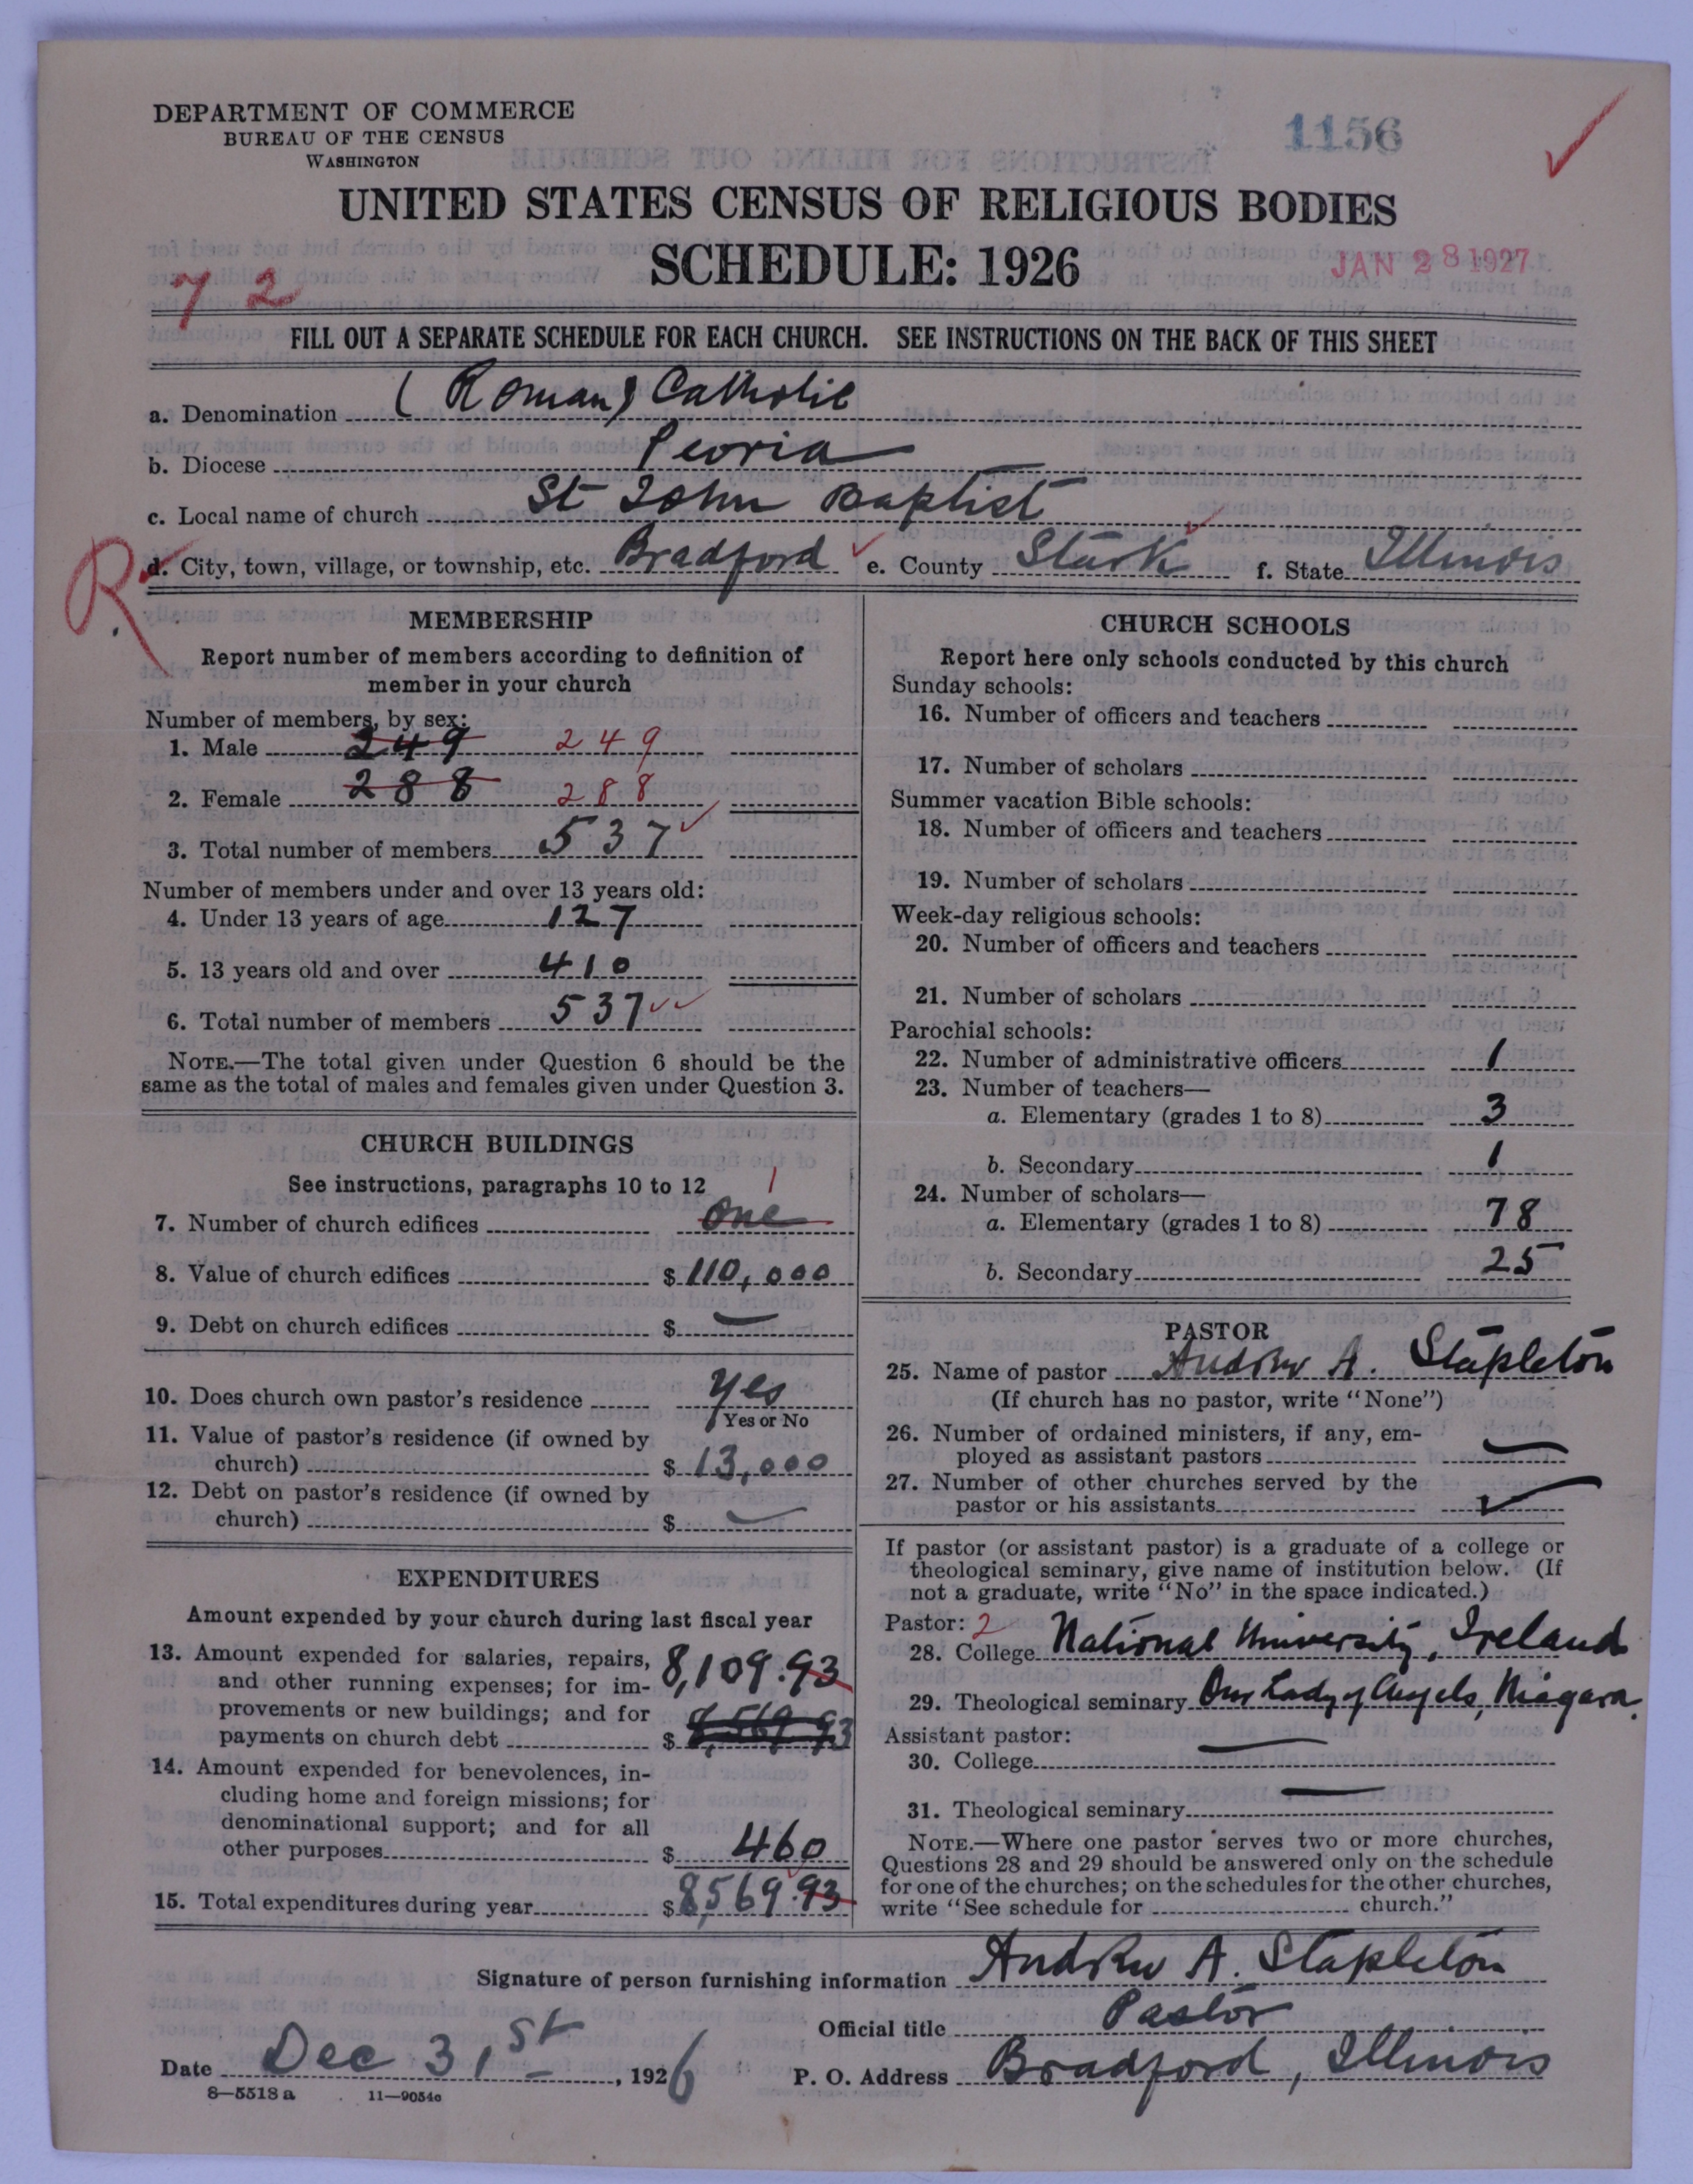 DEPARTMENT OF COMMERCE
BUREAU OF THE CENSUS
WASHINGTON
1156
UNITED STATES CENSUS OF RELIGIOUS BODIES
SCHEDULE: 1926
JAN 28 1927
72
FILL OUT A SEPARATE SCHEDULE FOR EACH CHURCH. SEE INSTRUCTIONS ON THE BACK OF THIS SHEET
a. Denomination (Roman) Catholic
b. Diocese Peoria
c. Local name of church St John Baptist
R d. City, town, village, or township, etc. Bradford e. County Stark f. State Illinois
MEMBERSHIP
Report number of members according to definition of
member in your church
Number of members, by sex:
1. Male 249 249
2. Female 288 288
3. Total number of members 537
Number of members under and over 13 years old:
4. Under 13 years of age 127
5. 13 years old and over 410
6. Total number of members 537
NOTE.—The total given under Question 6 should be the
same as the total of males and females given under Question 3.
CHURCH BUILDINGS
See instructions, paragraphs 10 to 12 1
7. Number of church edifices One
8. Value of church edifices $ 110,000
9. Debt on church edifices $ —
10. Does church own pastor's residence Yes
Yes or No
11. Value of pastor's residence (if owned by
church) $ 13,000
12. Debt on pastor's residence (if owned by
church) $ —
EXPENDITURES
Amount expended by your church during last fiscal year
13. Amount expended for salaries, repairs, 8,109.93
and other running expenses; for im-
provements or new buildings; and for
payments on church debt $ 8,569 93
14. Amount expended for benevolences, in-
cluding home and foreign missions; for
denominational support; and for all
other purposes $ 460
15. Total expenditures during year $ 8,569.93
CHURCH SCHOOLS
Report here only schools conducted by this church
Sunday schools:
16. Number of officers and teachers
17. Number of scholars
Summer vacation Bible schools:
18. Number of officers and teachers
19. Number of scholars
Week-day religious schools:
20. Number of officers and teachers
21. Number of scholars
Parochial schools:
22. Number of administrative officers 1
23. Number of teachers—
a. Elementary (grades 1 to 8) 3
b. Secondary 1
24. Number of scholars—
a. Elementary (grades 1 to 8) 78
b. Secondary 25
PASTOR
25. Name of pastor Andrew A. Stapleton
(If church has no pastor, write "None")
26. Number of ordained ministers, if any, em-
ployed as assistant pastors —
27. Number of other churches served by the
pastor or his assistants
If pastor (or assistant pastor) is a graduate of a college or
theological seminary, give name of institution below. (If
not a graduate, write "No" in the space indicated.)
Pastor: 2
28. College National University, Ireland
29. Theological seminary Our Lady of Angels, Niagara.
Assistant pastor:
30. College —
31. Theological seminary —
NOTE.—Where one pastor serves two or more churches,
Questions 28 and 29 should be answered only on the schedule
for one of the churches; on the schedules for the other churches,
write "See schedule for church."
Signature of person furnishing information Andrew A. Stapleton
Official title Pastor
Date Dec 31st, 1926 P. O. Address Bradford, Illinois
8—5518 a 11—9054c